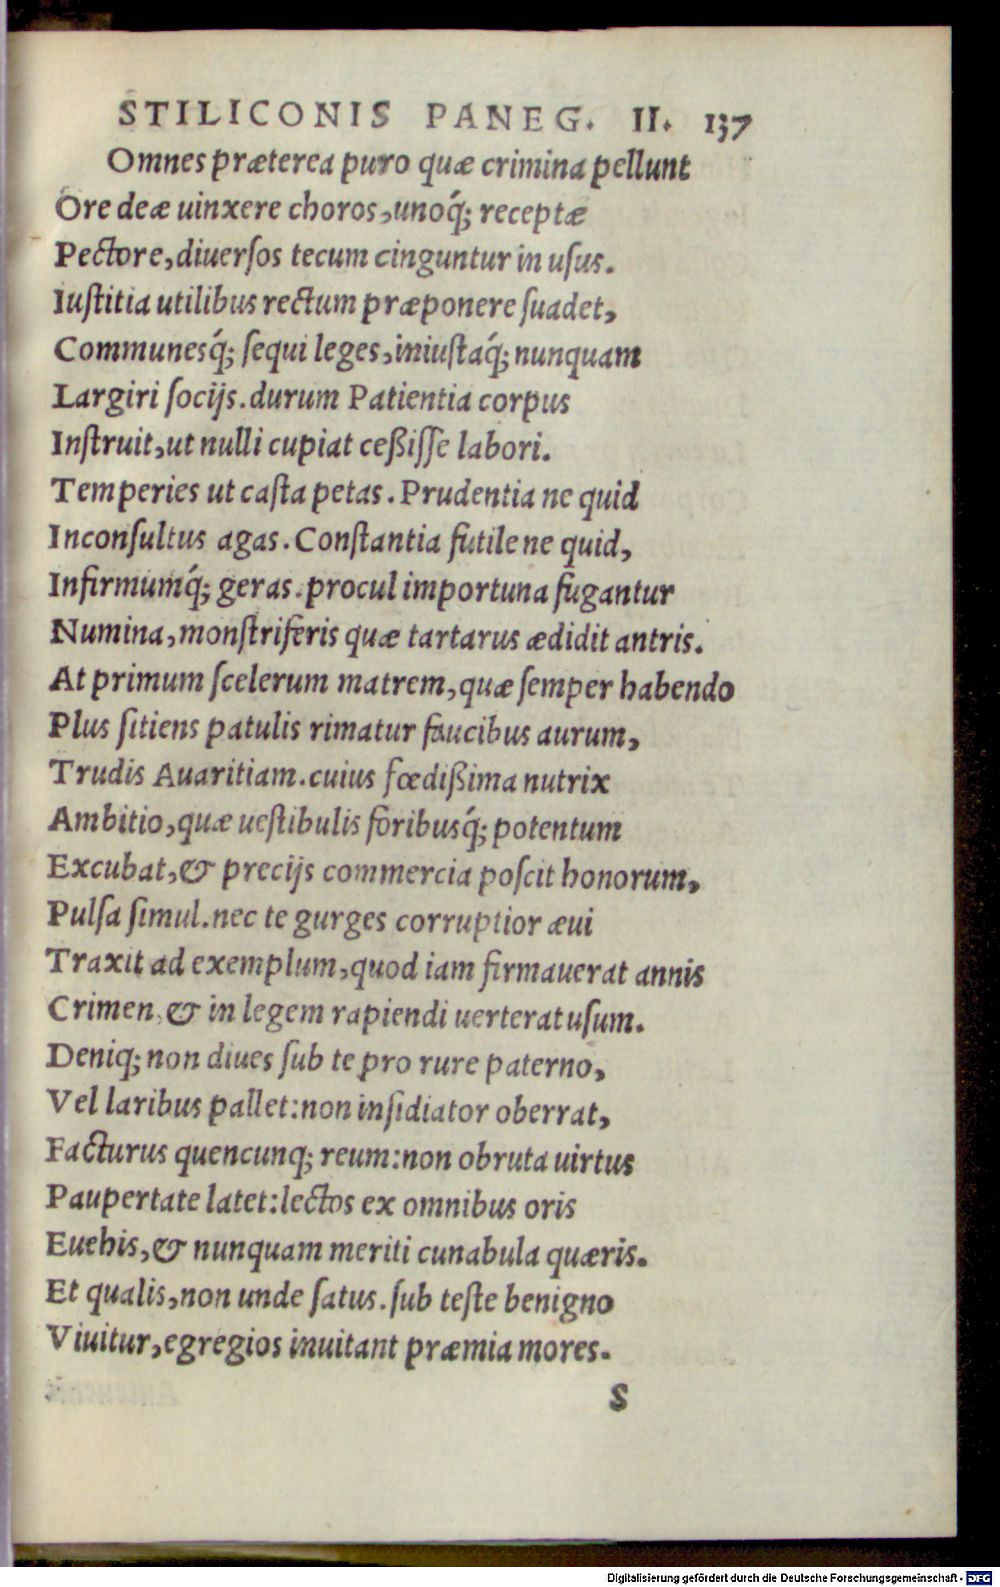 STILICONIS PANEG. II. 137
Omnes præterea puro quæ crimina pellunt
Ore deæ uinxere choros, unoq́; receptæ
Pectore, diuerſos tecum cinguntur in uſus.
Iuſtitia utilibus rectum præponere ſuadet,
Communesq́; ſequi leges, iniuſtaq́; nunquam
Largiri ſocijs. durum Patientia corpus
Inſtruit, ut nulli cupiat ceßiſſe labori.
Temperies ut caſta petas. Prudentia ne quid
Inconſultus agas. Conſtantia futile ne quid,
Infirmumq́; geras. procul importuna fugantur
Numina, monſtriferis quæ tartarus ædidit antris.
At primum ſcelerum matrem, quæ ſemper habendo
Plus ſitiens patulis rimatur faucibus aurum,
Trudis Auaritiam. cuius fœdißima nutrix
Ambitio, quæ ueſtibulis foribusq́; potentum
Excubat, & precijs commercia poſcit honorum,
Pulſa ſimul. nec te gurges corruptior æui
Traxit ad exemplum, quod iam firmauerat annis
Crimen, & in legem rapiendi uerterat uſum.
Deniq; non diues ſub te pro rure paterno,
Vel laribus pallet: non inſidiator oberrat,
Facturus quencunq; reum: non obruta uirtus
Paupertate latet: lectos ex omnibus oris
Euehis, & nunquam meriti cunabula quæris.
Et qualis, non unde ſatus. ſub teſte benigno
Viuitur, egregios inuitant præmia mores.
S
Digitalisierung gefördert durch die Deutsche Forschungsgemeinschaft - DFG